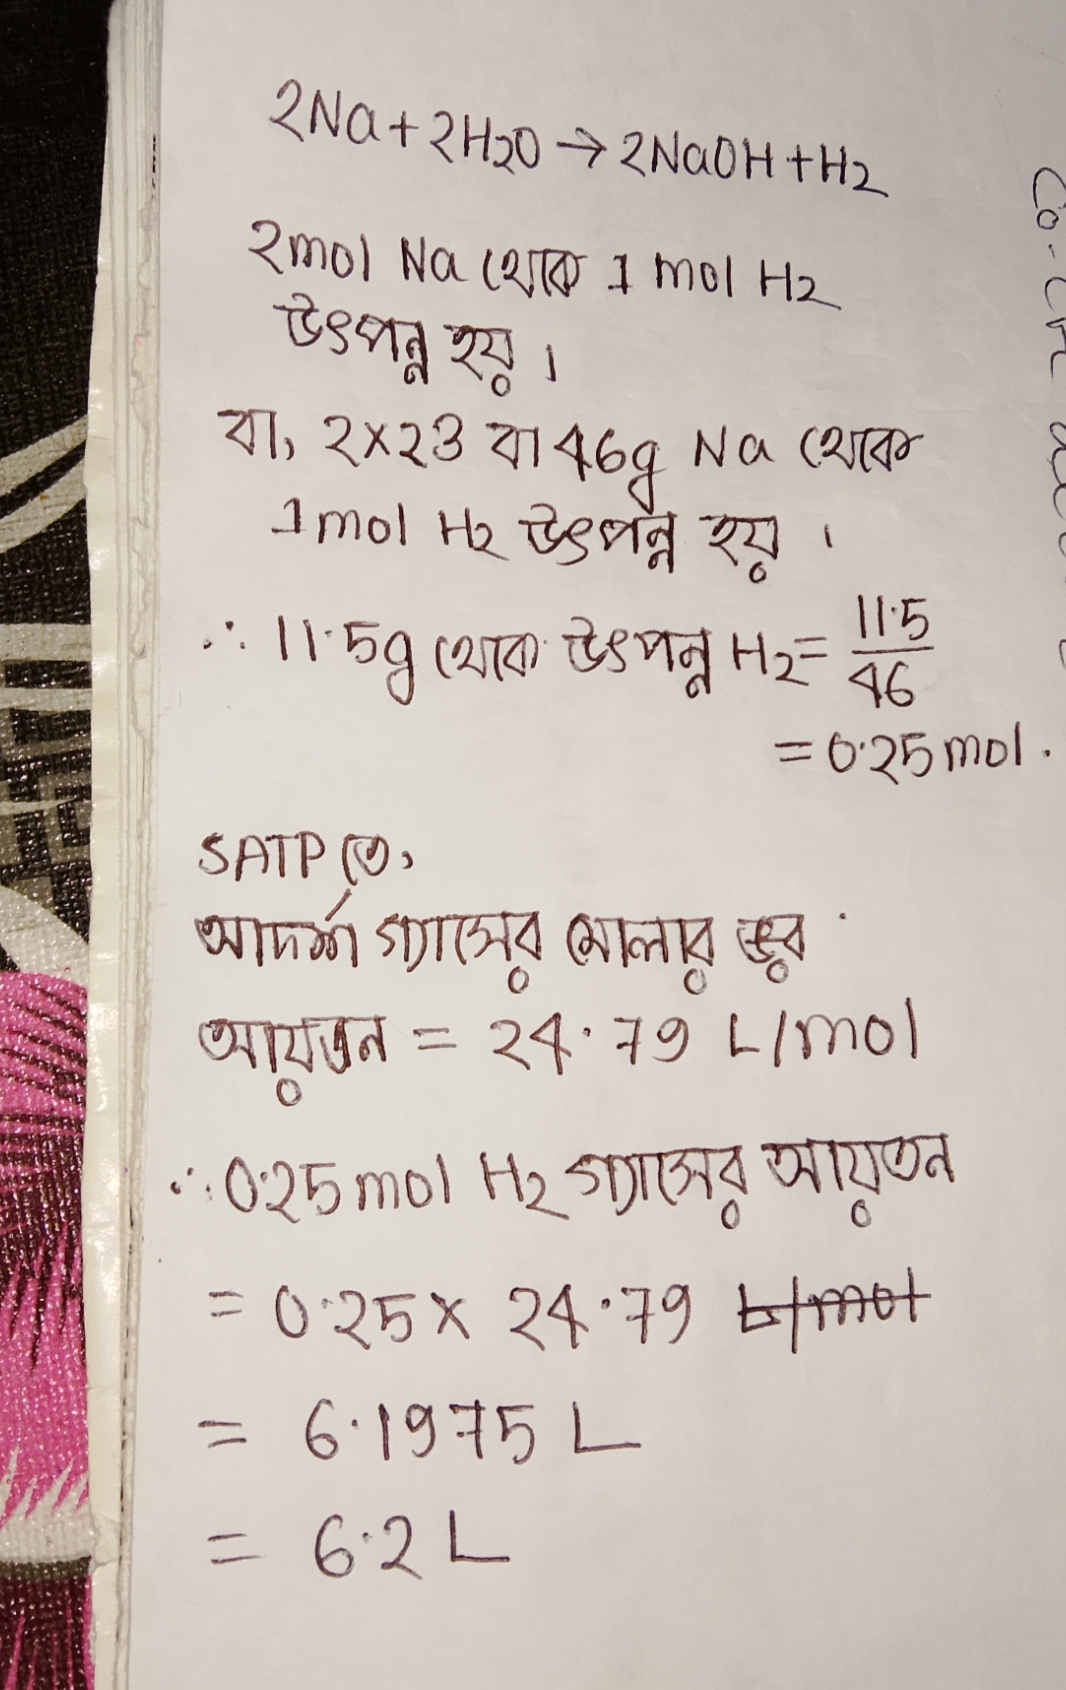 2Na+2H2O → 2NaOH+H2
2mol Na থেকে 1 mol H2
উৎপন্ন হয়।
বা, 2×23 বা 46g Na থেকে
1mol H2 উৎপন্ন হয়।
∴ 11.5g থেকে উৎপন্ন H2= 11.5/46
=0.25mol.
SATP তে,
আদর্শ গ্যাসের মোলার ভর
আয়তন = 24.79 L/mol
∴ 0.25mol H2 গ্যাসের আয়তন
= 0.25× 24.79 L/mol
= 6.1975 L
= 6.2 L
Co-